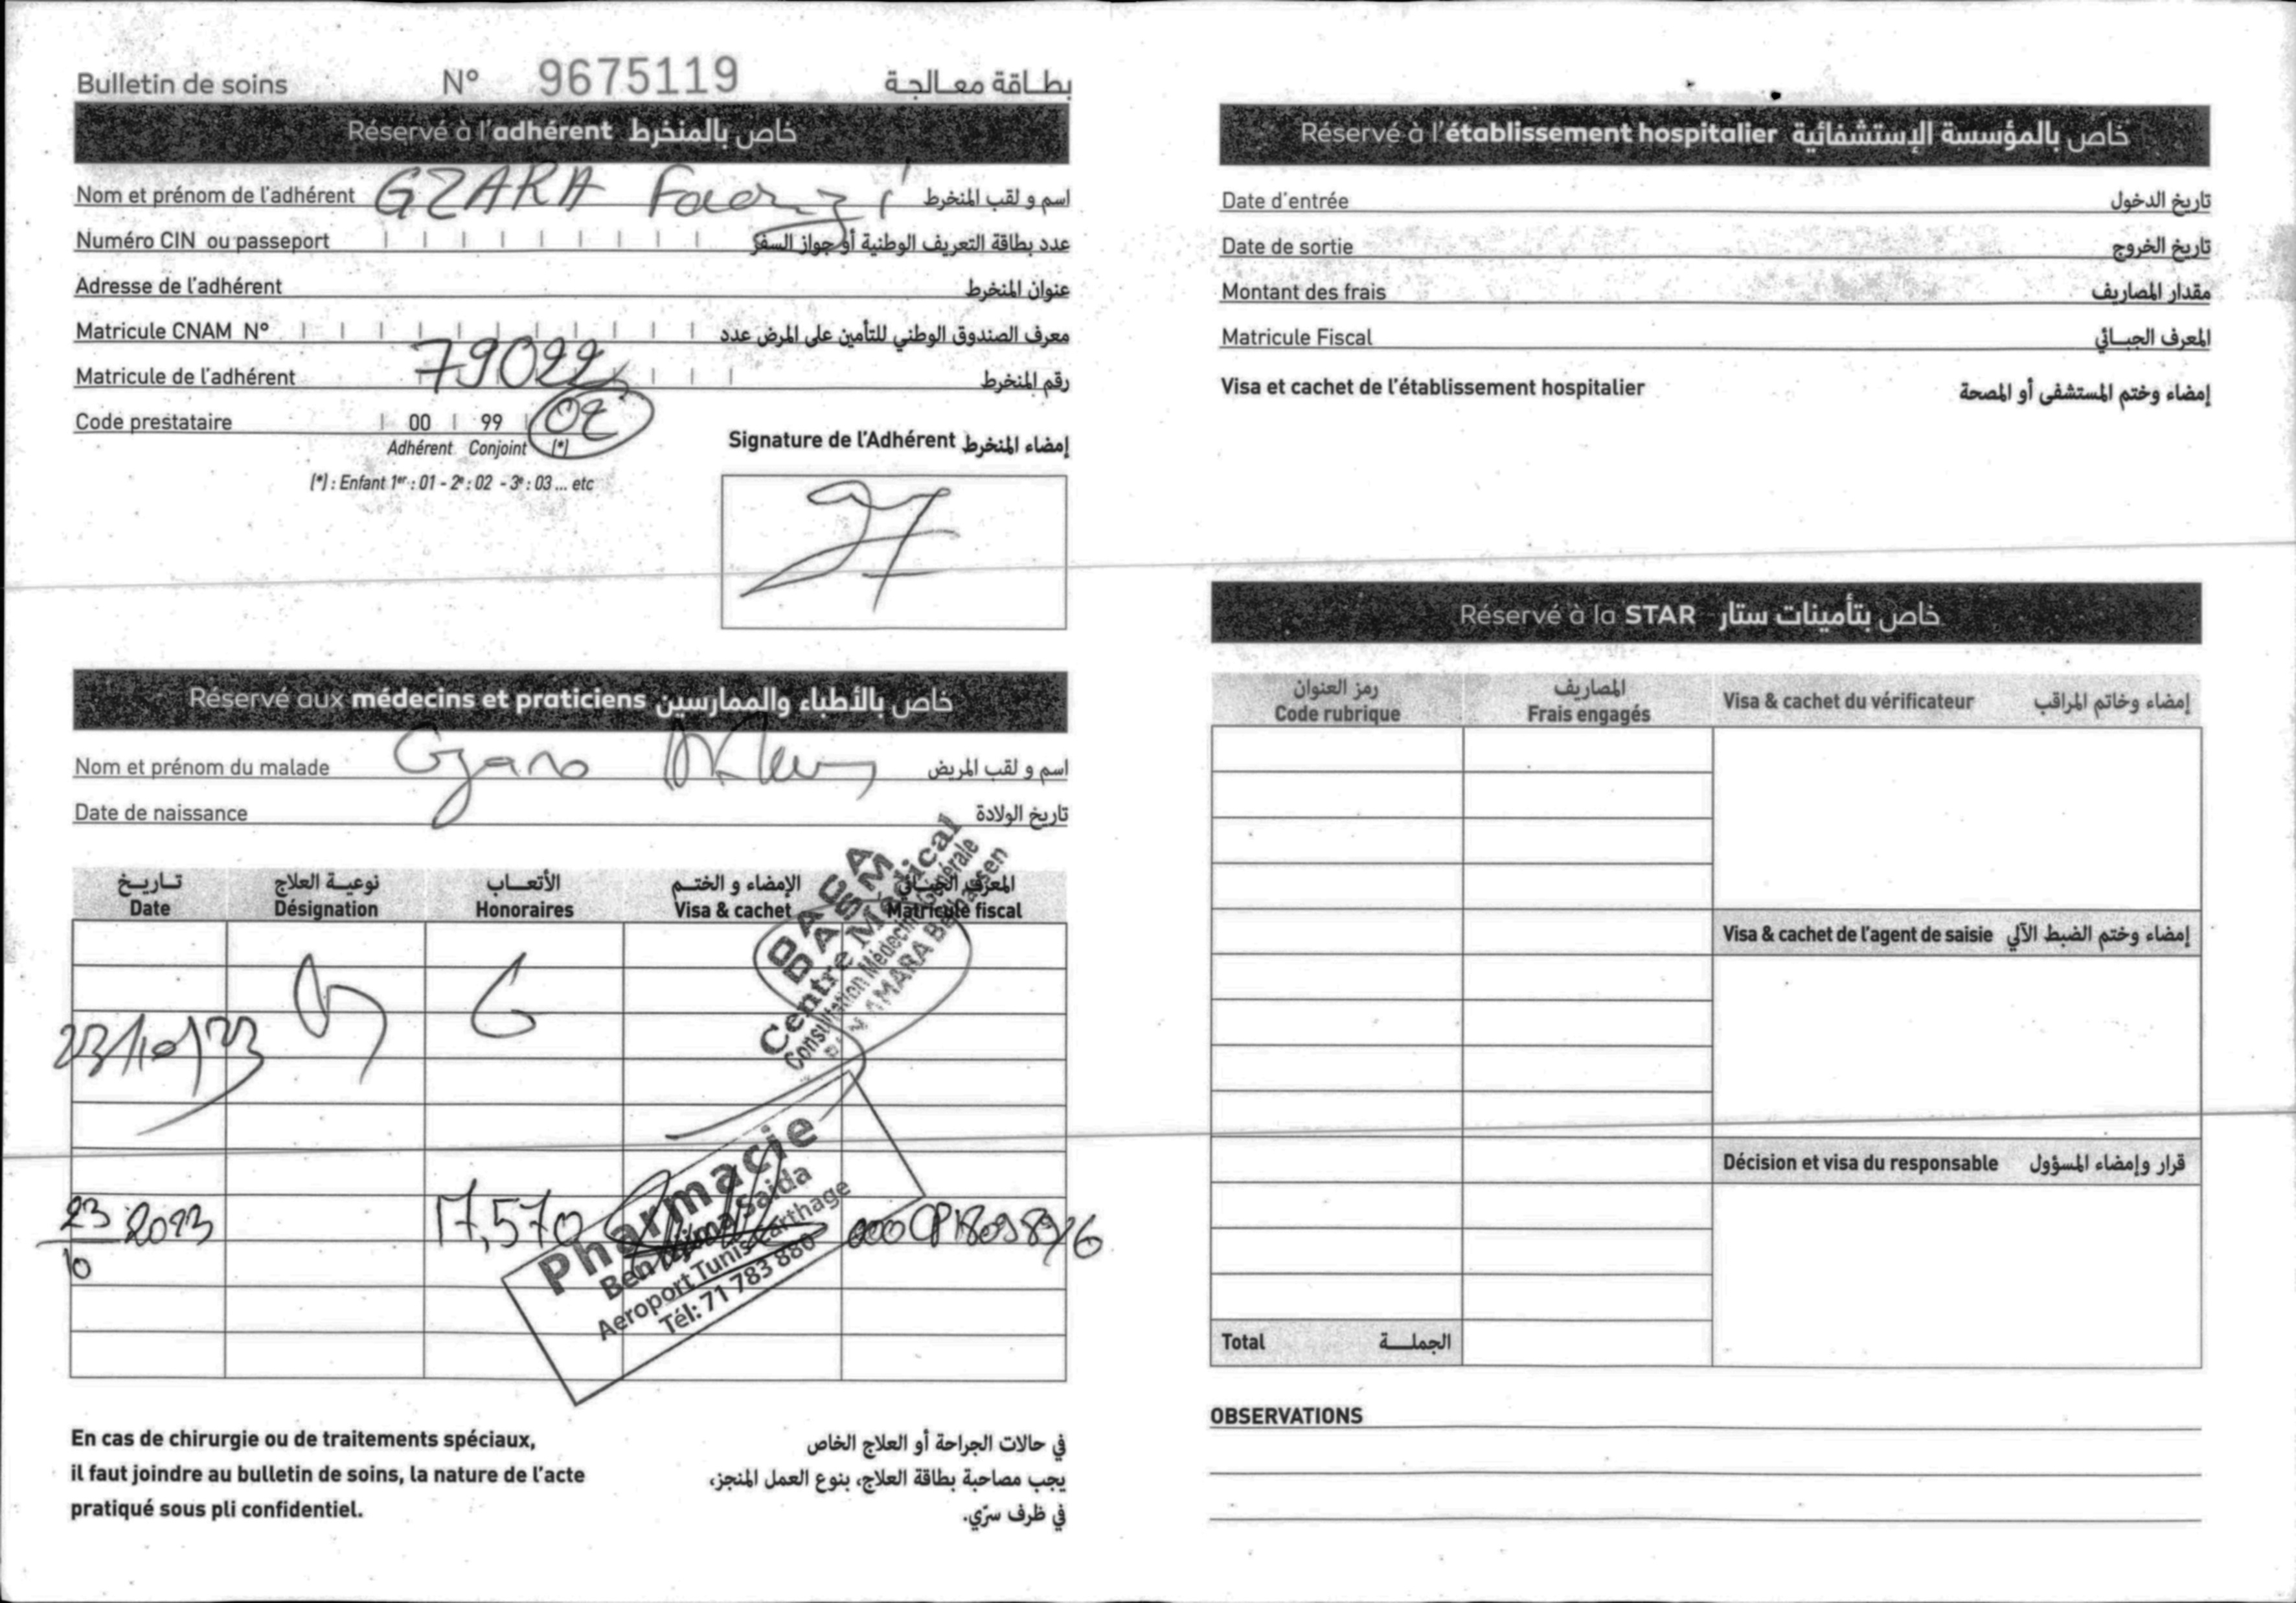 Bulletin de soins N° 9675119 بطاقة معالجة
Réservé à l'adhérent خاص بالمنخرط
Nom et prénom de l'adhérent GZARA Faouzi اسم و لقب المنخرط
Numéro CIN ou passeport عدد بطاقة التعريف الوطنية أو جواز السفر
Adresse de l'adhérent عنوان المنخرط
Matricule CNAM N° معرف الصندوق الوطني للتأمين على المرض عدد
Matricule de l'adhérent 79022 رقم المنخرط
Code prestataire 00 99 02
Adhérent Conjoint (*)
(*) : Enfant 1er : 01 - 2e : 02 - 3e : 03 ... etc
Signature de l'Adhérent إمضاء المنخرط
Réservé aux médecins et praticiens خاص بالأطباء والممارسين
Nom et prénom du malade Gzara اسم و لقب المريض
Date de naissance تاريخ الولادة
تاريخ نوعية العلاج الأتعاب الإمضاء و الختم المعرف الجبائي
Date Désignation Honoraires Visa & cachet Matricule fiscal
Centre Médical
Consultation Médecine Générale
23/10/23
Pharmacie
Ben Njima Saida
Aeroport Tunis Carthage
Tél: 71 783 880
23/10 2023 17,570
En cas de chirurgie ou de traitements spéciaux,
il faut joindre au bulletin de soins, la nature de l'acte
pratiqué sous pli confidentiel.
في حالات الجراحة أو العلاج الخاص
يجب مصاحبة بطاقة العلاج، بنوع العمل المنجز،
في ظرف سرّي.
Réservé à l'établissement hospitalier خاص بالمؤسسة الإستشفائية
Date d'entrée تاريخ الدخول
Date de sortie تاريخ الخروج
Montant des frais مقدار المصاريف
Matricule Fiscal المعرف الجبائي
Visa et cachet de l'établissement hospitalier إمضاء وختم المستشفى أو المصحة
Réservé à la STAR خاص بتأمينات ستار
رمز العنوان المصاريف
Code rubrique Frais engagés Visa & cachet du vérificateur إمضاء وخاتم المراقب
Visa & cachet de l'agent de saisie إمضاء وختم الضبط الآلي
Décision et visa du responsable قرار وإمضاء المسؤول
Total الجملة
OBSERVATIONS